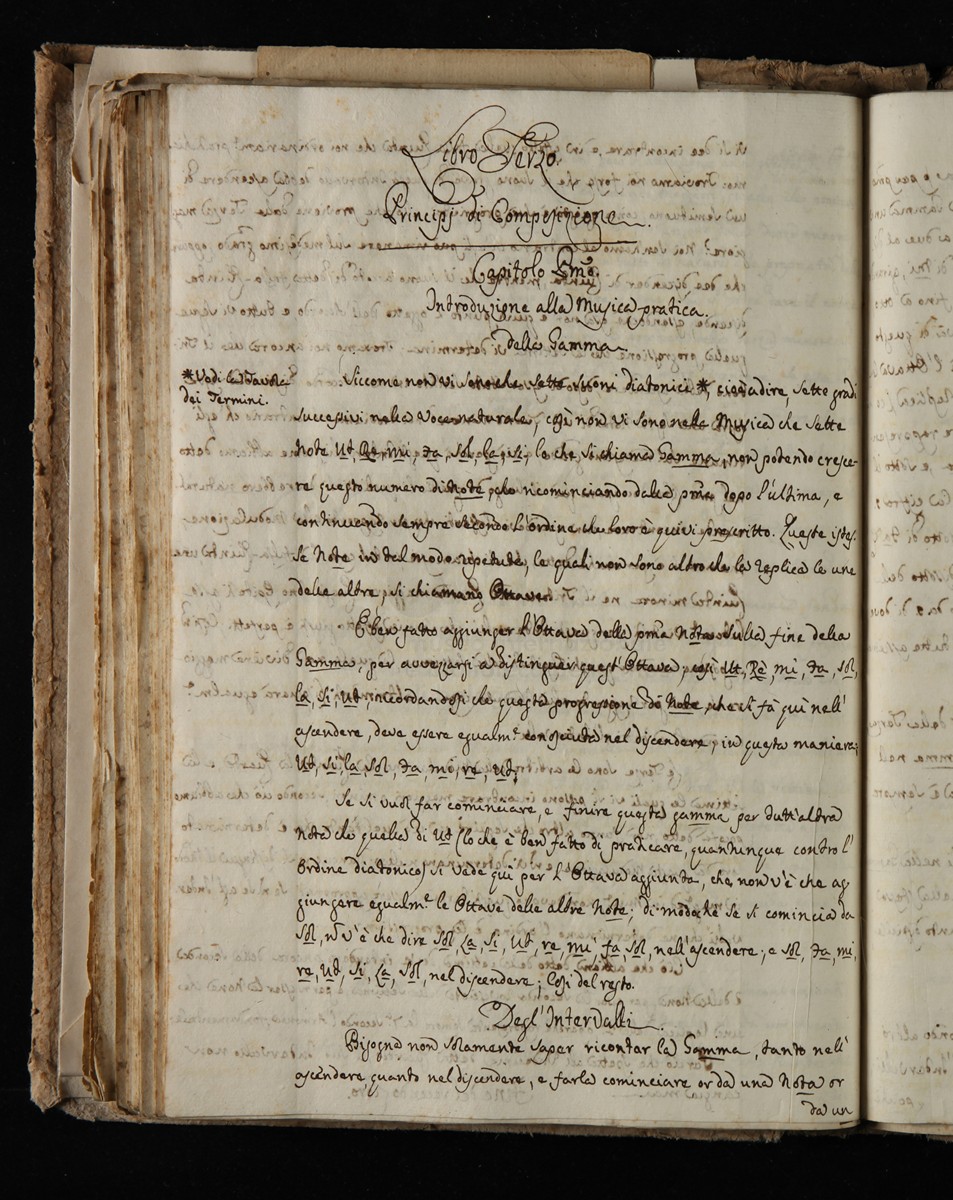 Libro Terzo.
Principj di Composizione.
Capitolo Pmo.
Introduzione alla Musica pratica.
Della Gamma.
*Vedi la Tavola
dei Termini.
Siccome non vi sono che sette suoni diatonici *, cioè a dire, sette gradi
successivi nella voce naturale, così non vi sono nella Musica che sette
note Ut, Re, mi, fa, sol, la, si, lo che si chiama Gamma, non potendo cresce-
re questo numero di Note, che ricominciando dalla pma. dopo l'ultima, e
continuando sempre secondo l'ordine che loro è quivi prescritto. Queste istes-
se Note in tal modo ripetute, le quali non sono altro che la replica le une
delle altre, si chiamano Ottave.
È ben fatto aggiunger l'Ottava della pma. Nota sulla fine della
Gamma, per avvezzarsi a distinguer quest'Ottava, così Ut, Re, mi, fa, sol,
la, si, Ut, ricordandosi che questa progressione de Note, che si fà quì nell'
ascendere, deve essere egualm.e conosciuta nel discendere, in questa maniera;
Ut, si, la, sol, fa, mi, re, ut.
Se si vuol far cominciare, e finire questa gamma per tutt'altra
nota che quella di Ut (lo che è ben fatto di praticare, quantunque contro l'
Ordine diatonico) si vede quì per l'Ottava aggiunta, che non v'è che ag-
giungere egualm.e le Ottave delle altre Note; di modo che se si comincia da
Sol, n v'è che dire Sol, La, Si, Ut, re, mi, fa, sol, nell'ascendere; e sol, fa, mi,
re, Ut, Si, La, Sol, nel discendere; Così del resto.
Degl'Intervalli.
Bisogna non solamente saper ricontar la Gamma, tanto nell'
ascendere, quanto nel discendere, e farla cominciare or da una Nota or
da un